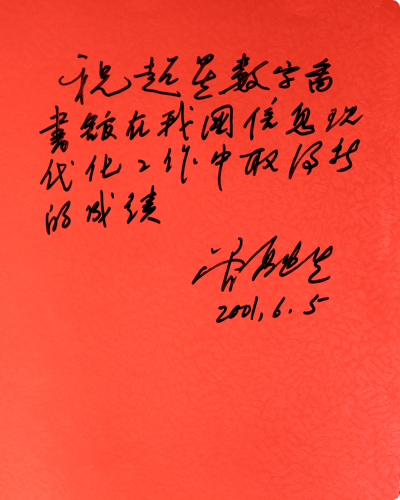 祝超星数字图
书馆在我国信息现
代化工作中取得新
的成绩
2001.6.5